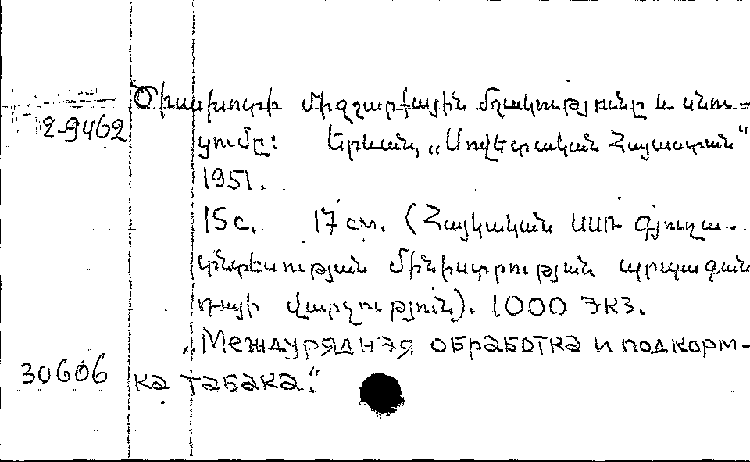 Ծխախոտի միջշարքային մշակությունը և սնու-
12-9462
ցումը: Երևան, „Սովետական Հայաստան"
1951.
15 с. 17 см. (Հայկական ՍՍՌ գյուղա-
տնտեսության մինիստրության պրոպագան
դայի վարչություն). 1000 экз.
„Междурядная обработка и подкорм-
30606
ка табака."